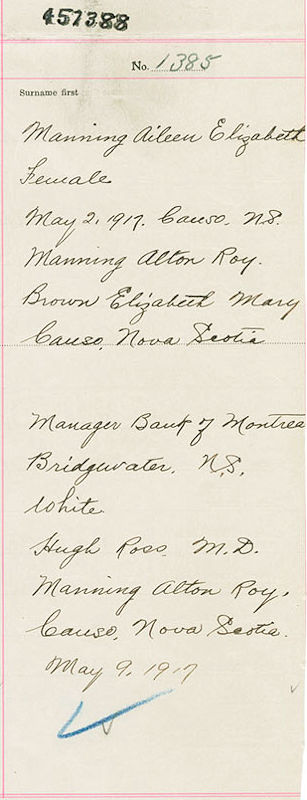 457388
No. 1385
Surname first
Manning Aileen Elizabeth
Female
May 2, 1917. Canso, N.S.
Manning Alton Roy.
Brown Elizabeth Mary
Canso, Nova Scotia
Manager Bank of Montrea
Bridgewater, N.S.
White
Hugh Ross, M.D.
Manning Alton Roy.
Canso, Nova Scotia.
May 9, 1917